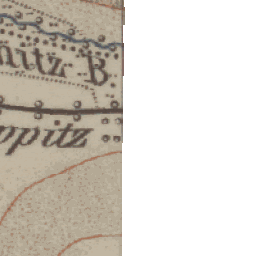 nitz B.
opitz